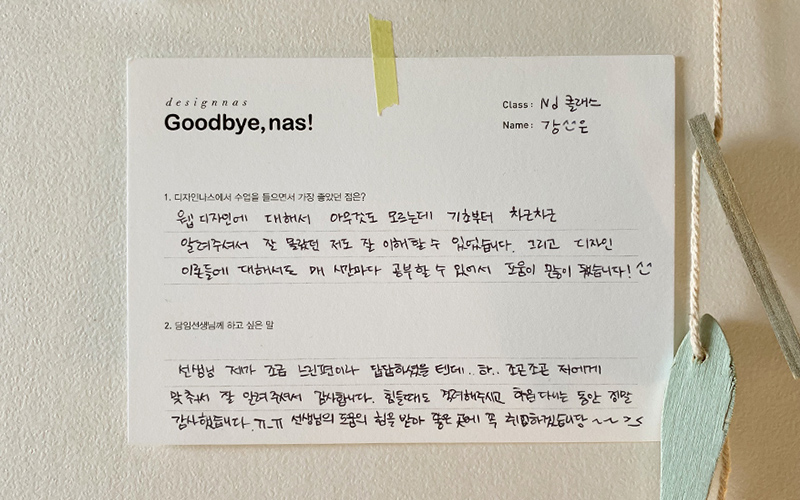 designnas
Goodbye, nas!
Class: Nd 클래스
Name: 강신은
1. 디자인나스에서 수업을 들으면서 가장 좋았던 점은?
웹 디자인에 대해서 아무것도 모르는데 기초부터 차근차근
알려주셔서 잘 몰랐던 저도 잘 이해할 수 있었습니다. 그리고 디자인
이론들에 대해서도 매 시간마다 공부할 수 있어서 도움이 많이 됐습니다! ^^
2. 담임선생님께 하고 싶은 말
선생님 제가 조금 느린편이나 답답하셨을 텐데.. 하.. 조곤조곤 저에게
맞춰서 잘 알려주셔서 감사합니다. 힘들때도 격려해주시고 학원 다니는 동안 정말
감사했습니다. ㅠ_ㅠ 선생님의 도움의 힘을 받아 좋은 곳에 꼭 취업하겠습니당 ~~ >_<